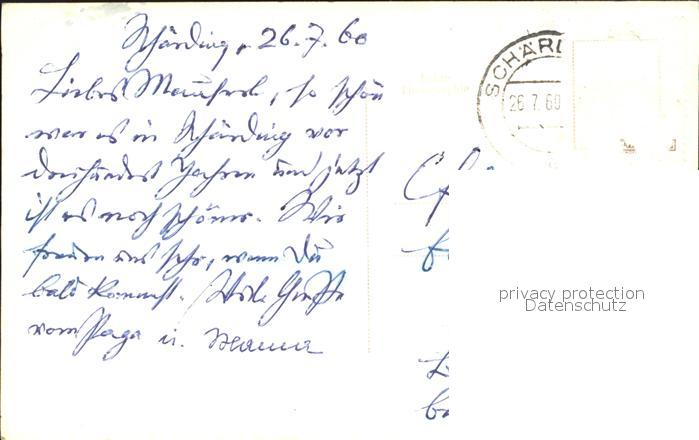 Schärding, 26.7.60
Liebes Manfred, so schön
war es in Schärding vor
dreihundert Jahren und jetzt
ist es noch schöner. Wir
freuen uns sehr, wenn Du
bald kommst. Viele Grüße
vom Papa u. Mama
SCHÄRD
26.7.60
privacy protection
Datenschutz